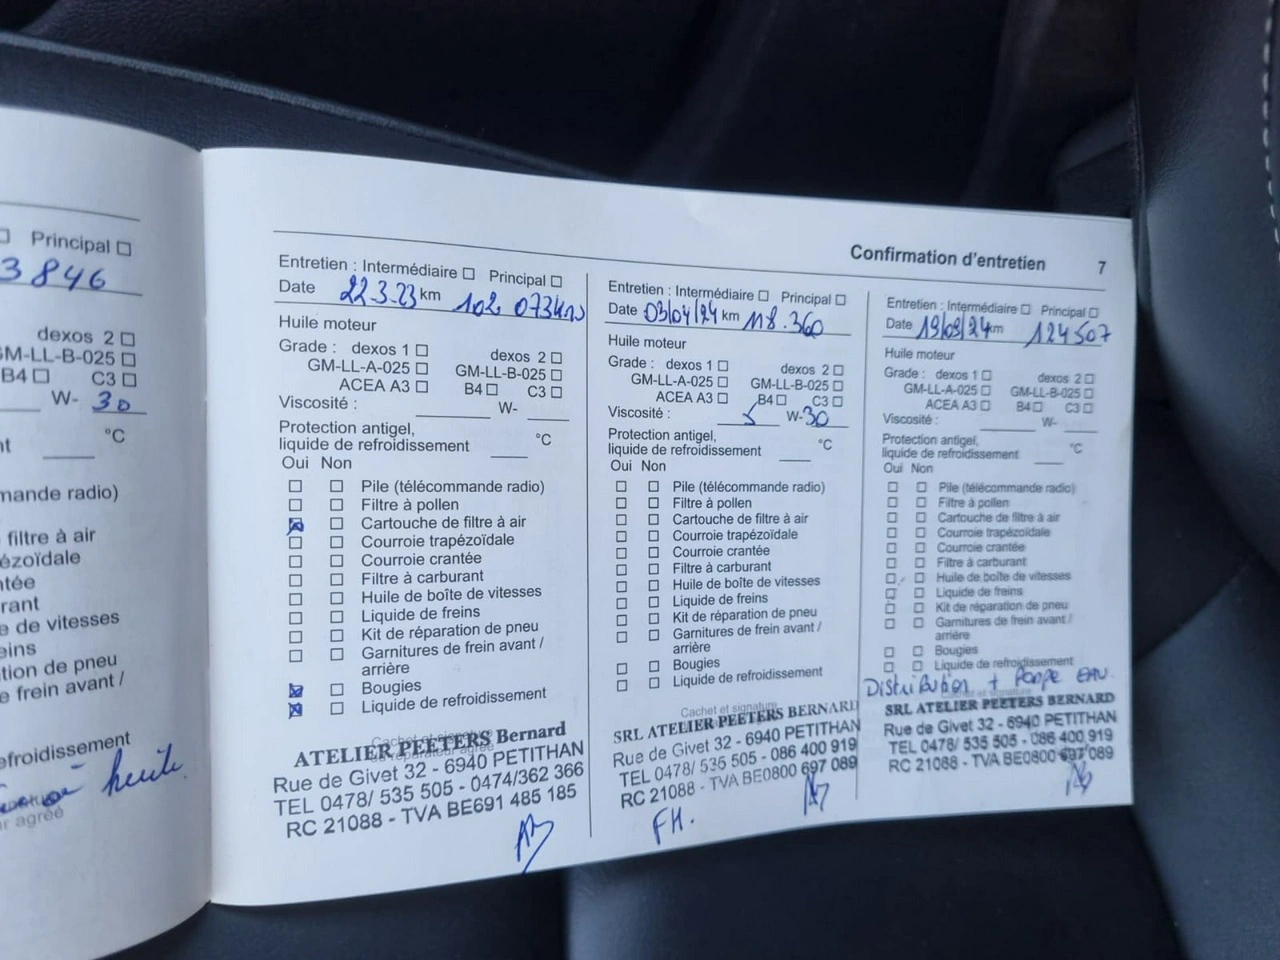 Principal
3846
dexos 2
GM-LL-B-025
B4 C3
W- 30
°C
filtre à air
de vitesses
tion de pneu
e frein avant /
efroidissement
huile
Confirmation d'entretien 7
Entretien : Intermédiaire Principal
Date 22.3.23 km 102 073km
Huile moteur
Grade : dexos 1 dexos 2
GM-LL-A-025 GM-LL-B-025
ACEA A3 B4 C3
Viscosité : W-
Protection antigel,
liquide de refroidissement °C
Oui Non
Pile (télécommande radio)
Filtre à pollen
Cartouche de filtre à air
Courroie trapézoïdale
Courroie crantée
Filtre à carburant
Huile de boîte de vitesses
Liquide de freins
Kit de réparation de pneu
Garnitures de frein avant /
arrière
Bougies
Liquide de refroidissement
Cachet et signature
ATELIER PEETERS Bernard
Rue de Givet 32 - 6940 PETITHAN
TEL 0478/ 535 505 - 0474/362 366
RC 21088 - TVA BE691 485 185
Entretien : Intermédiaire Principal
Date 03/04/24 km 118.360
Huile moteur
Grade : dexos 1 dexos 2
GM-LL-A-025 GM-LL-B-025
ACEA A3 B4 C3
Viscosité : 5 W-30
Protection antigel,
liquide de refroidissement °C
Oui Non
Pile (télécommande radio)
Filtre à pollen
Cartouche de filtre à air
Courroie trapézoïdale
Courroie crantée
Filtre à carburant
Huile de boîte de vitesses
Liquide de freins
Kit de réparation de pneu
Garnitures de frein avant /
arrière
Bougies
Liquide de refroidissement
Cachet et signature
SRL ATELIER PEETERS BERNARD
Rue de Givet 32 - 6940 PETITHAN
TEL 0478/ 535 505 - 086 400 919
RC 21088 - TVA BE0800 697 089
FH.
Entretien : Intermédiaire Principal
Date 19/09/24 km 124507
Huile moteur
Grade : dexos 1 dexos 2
GM-LL-A-025 GM-LL-B-025
ACEA A3 B4 C3
Viscosité : W-
Protection antigel,
liquide de refroidissement °C
Oui Non
Pile (télécommande radio)
Filtre à pollen
Cartouche de filtre à air
Courroie trapézoïdale
Courroie crantée
Filtre à carburant
Huile de boîte de vitesses
Liquide de freins
Kit de réparation de pneu
Garnitures de frein avant /
arrière
Bougies
Liquide de refroidissement
Distribution + Pompe EAU
SRL ATELIER PEETERS BERNARD
Rue de Givet 32 - 6940 PETITHAN
TEL 0478/ 535 505 - 086 400 919
RC 21088 - TVA BE0800 697 089